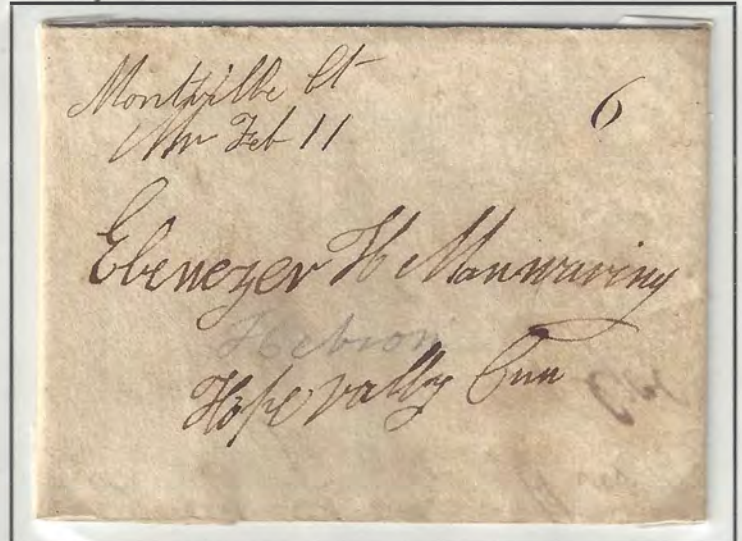 Montville Ct
Feb 11
6
Ebenezer H Manwaring
Hebron
Hope vally Cnn